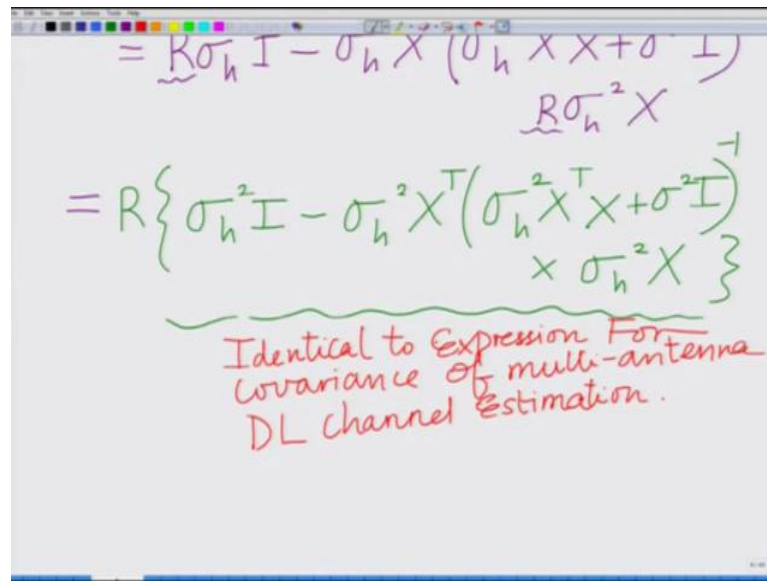 = Rσ_h I − σ_h X (σ_h X X + σ² I)
Rσ_h² X
= R{σ_h² I − σ_h² X^T (σ_h² X^T X + σ² I)^-1
× σ_h² X }
Identical to Expression For
covariance of multi-antenna
DL Channel Estimation.